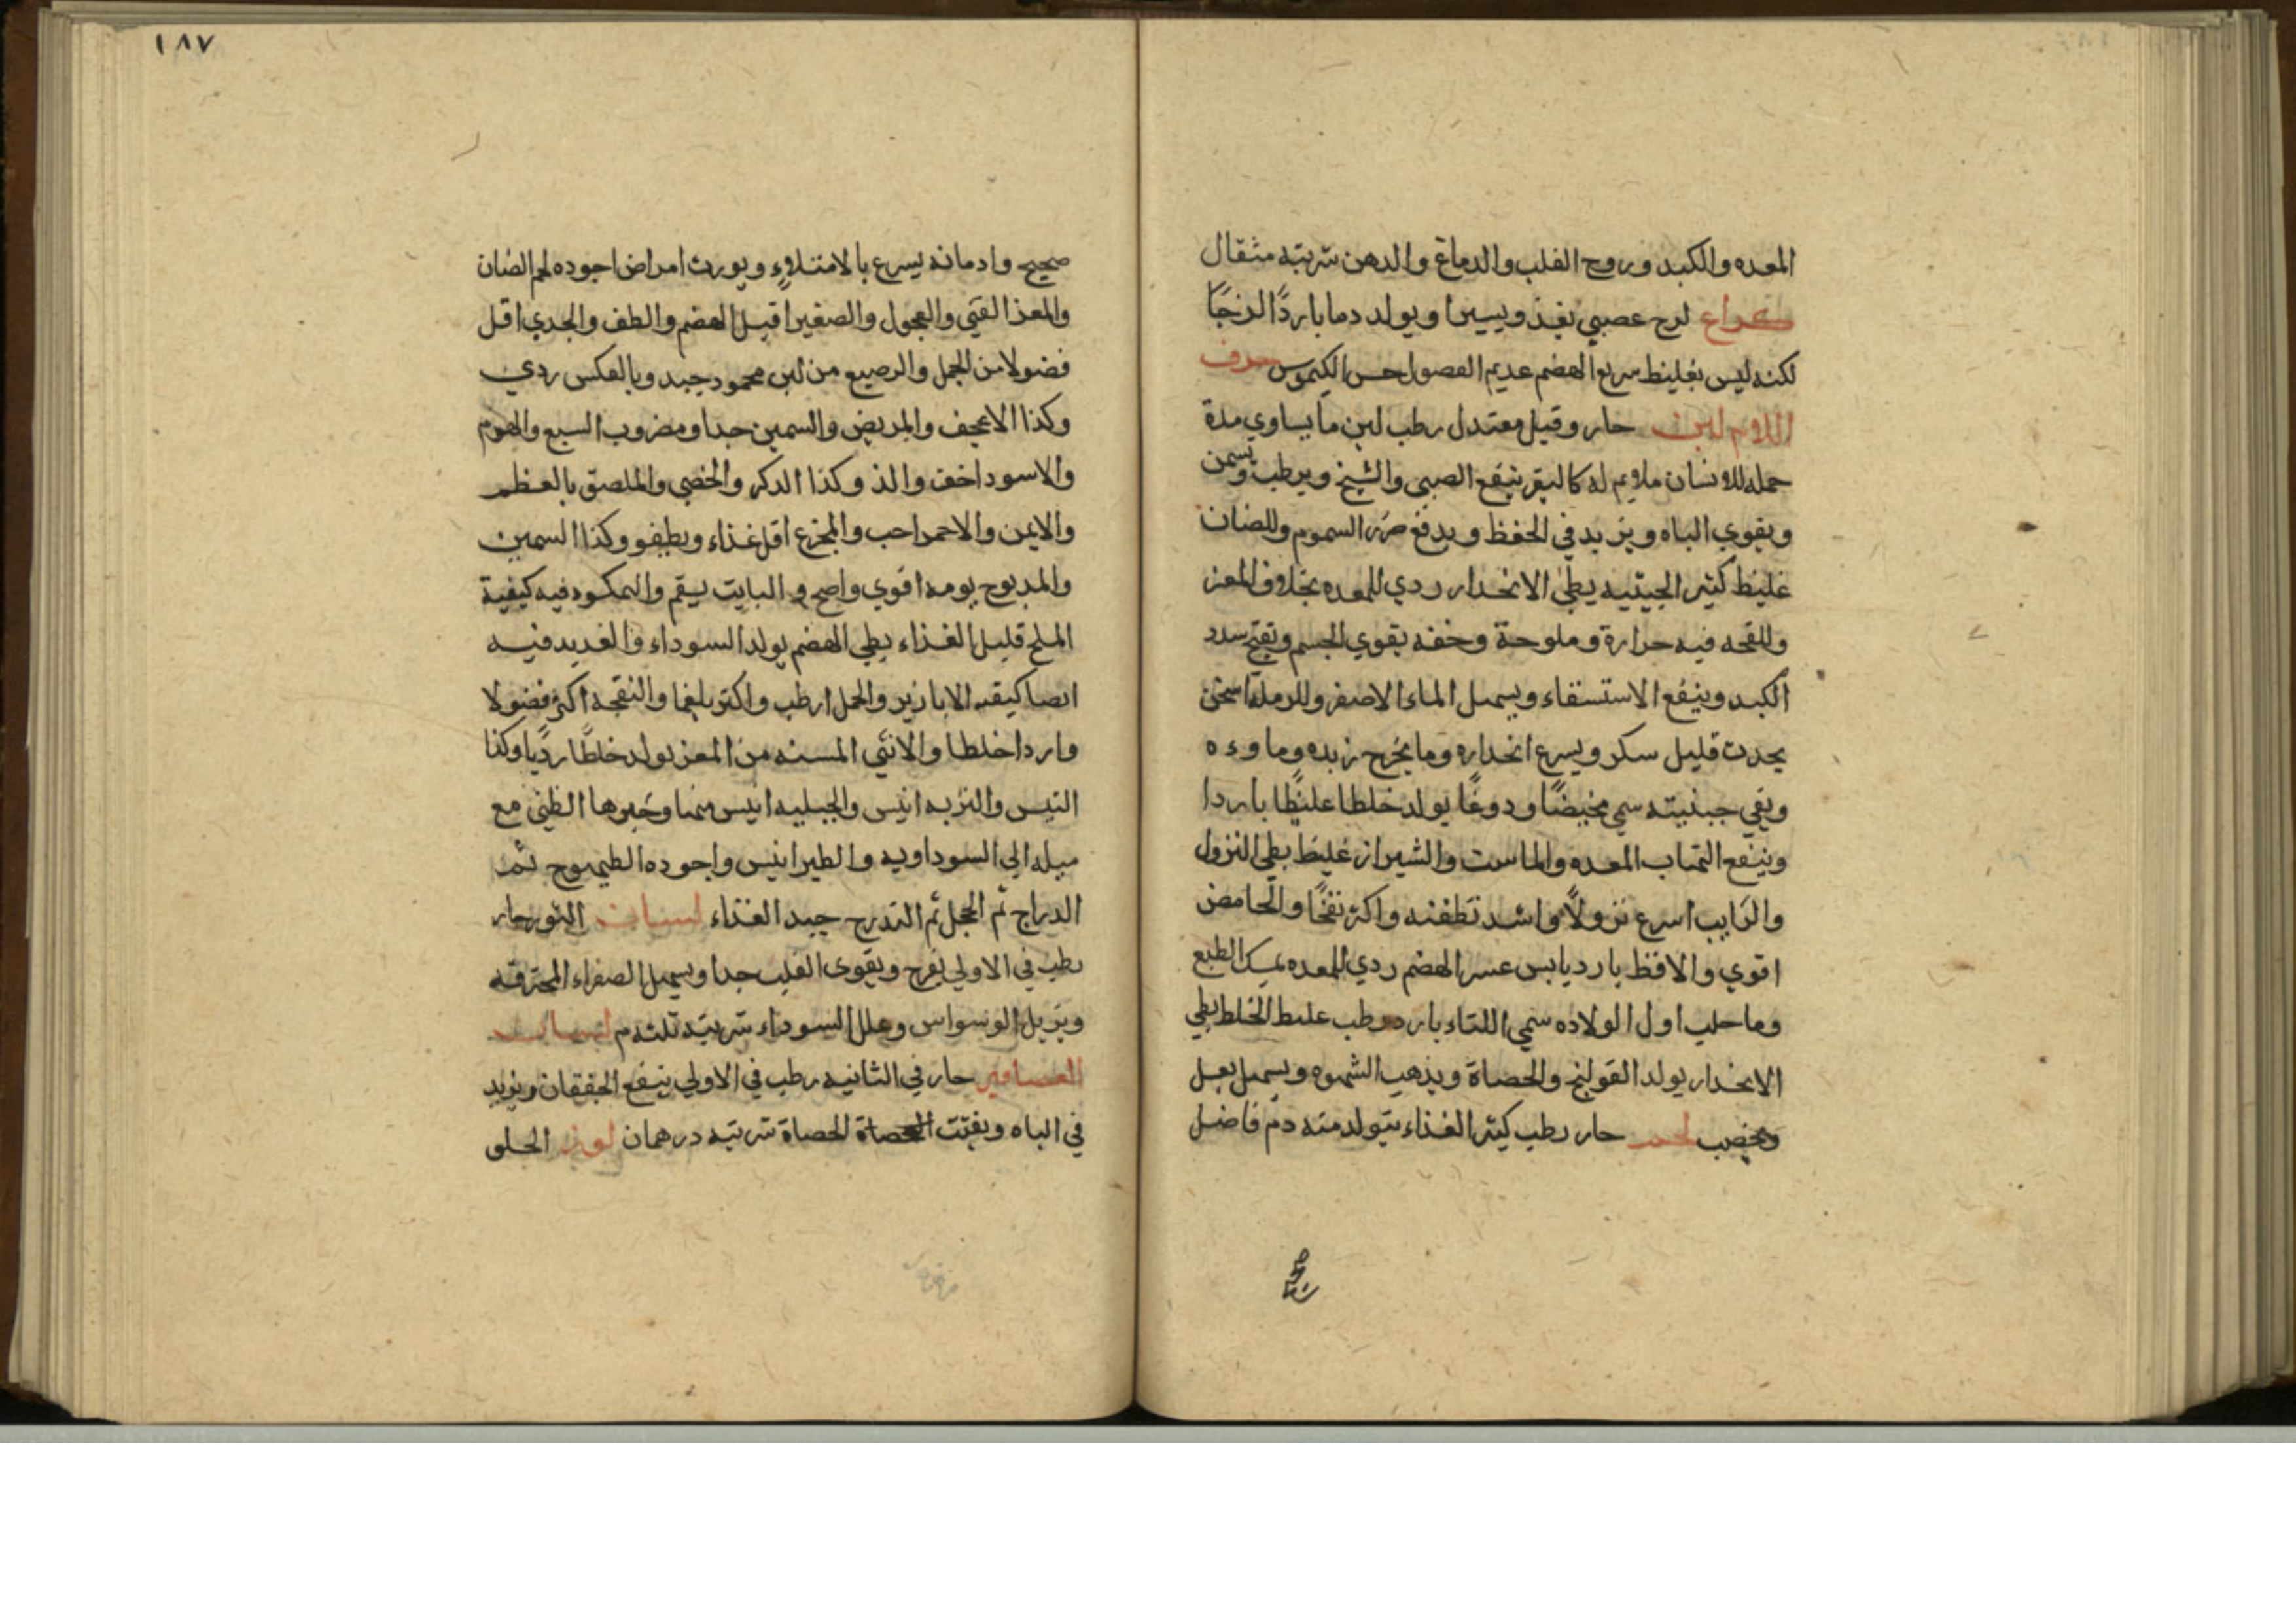 المعده والكبد وروح القلب والدماغ والدهن شربته مثقال
كراع لزج عصبي نفذ ويسيرا ويولد دما باردًا لزجًا
لكنه ليس بغليظ سريع الهضم عديم الفصول حسن الكيموس حرف
اللام لبن حار وقيل معتدل رطب لبن ما يساوي مدة
حمله للانسان ملايم له كالبقر ينفع الصبي والشيخ ويرطب ويسمن
ويقوي الباه ويزيد في الحفظ ويدفع ضرر السموم وللضان
غليظ كثير الجبنيه يطئ الانحدار ردي للمعده بخلاف المعز
وللقحه فيه حرارة وملوحة وخفه يقوي الجسم ويفتح سدد
الكبد وينفع الاستسقاء ويسهل الماء الاصفر وللرمكة اسخن
يحدث قليل سكر ويسرع انحداره وما يخرج زبده وماوءه
وبقي جبنيته سمي مخيضًا ودوغًا يولد خلطا غليظًا باردا
وينفع التهاب المعده والماست والشيراز غليظ بطي النزول
والرايب اسرع نزولًا واشد تطفئه واكثر نفخًا والحامض
اقوي والاقط بارد يابس عسر الهضم ردي للمعده يمسك الطبع
وما حلب اول الولاده سمي اللباء بارد رطب غليظ الخلط بطي
الانحدار يولد القولنج والحصاة ويذهب الشهوه ويسهل بعسل
ويخصب لحم حار رطب كثير الغذاء يتولد منه دم فاضل
صحيح
١٨٧
صحيح وادمانه يسرع بالامتلاء ويورث امراض اجوده لحم الضان
والمعز الفتي والعجول والصغير اقبل الهضم والطف والجدي اقل
فضولا من الجمل والرضيع من لبن محمود جيد وبالعكس ردي
وكذا الاعجف والمريض والسمين جدا ومضروب السبع والهرم
والاسود اخف والذ وكذا الذكر والخصي والملصق بالعظم
والايمن والاحمر احب والمجزع اقل غذاء ويطفو وكذا السمين
والمدبوح يومه اقوي واصح والبايت يسقم والنمكسود فيه كيفية
الملح قليل الغذاء بطي الهضم يولد السوداء والقديد فيه
ايضا كيفيه الابازير والحمل ارطب واكثر بلغما والنعجه اكثر فضولا
واردا خلطا والانثي المسنه من المعز يولد خلطًا رديًا وكذا
التيس والبريه ايبس والجبليه ايبس منها وخيرها الظبي مع
ميله الي السوداويه والطير ايبس واجوده الطيهوج ثم
الدراج ثم الحجل ثم التدرج جيد الغذاء لسان الثور حار
رطب في الاولي يفرح ويقوي القلب جدا ويسهل الصفراء المحترقه
ويزيل الوسواس وعلل السوداء شربته ثلثه م لسان
العصافير حار في الثانيه رطب في الاولي ينفع الخفقان ويزيد
في الباه ويفتت الحصاة شربته درهمان لوز الحلو